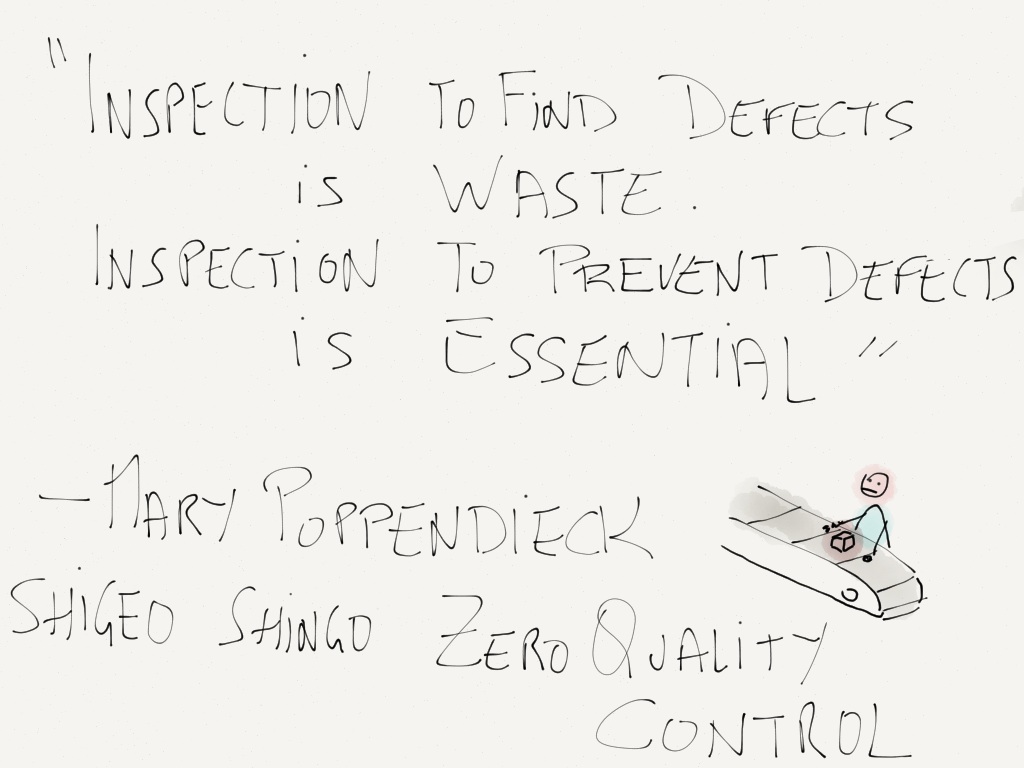 "INSPECTION TO FIND DEFECTS
is WASTE.
INSPECTION TO PREVENT DEFECTS
is ESSENTIAL"
- MARY POPPENDIECK
SHIGEO SHINGO ZERO QUALITY
CONTROL